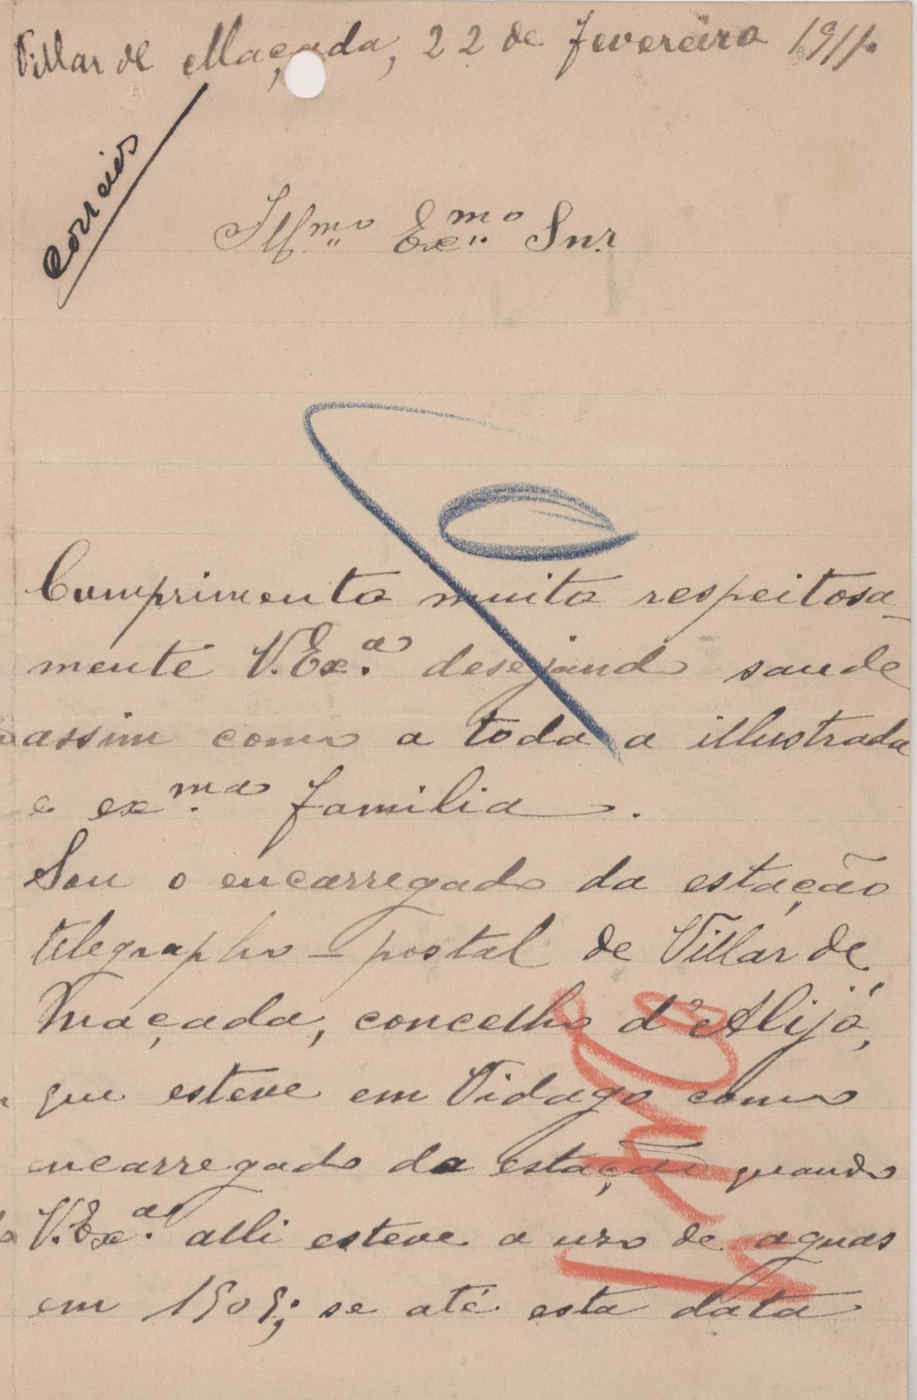 Villar de Maçada, 22 de fevereiro 1911.
Correios
Ill.mo Ex.mo Snr.
Cumprimento muito respeitosa-
mente V. Ex.a desejando saude
assim como a toda a illustrada
e ex.ma familia.
Sou o encarregado da estação
telegrapho-postal de Villar de
Maçada, concelho d'Alijó,
que esteve em Vidago como
encarregado da estação quando
V. Ex.a alli esteve a uso de aguas
em 1909; se até esta data